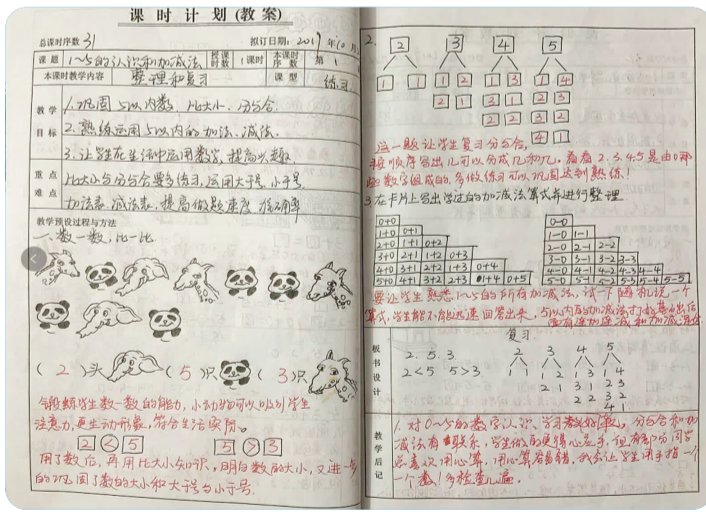 课 时 计 划 (教 案)
总课时序数 31 拟订日期: 2019 年 10 月
课 题 1~5的认识和加减法 授课时数 1课时 本课时序数 第 1
本课时教学内容 整理和复习 课 型 练习
教学目标
1.巩固5以内数,比大小,分与合.
2.熟练运用5以内的加法、减法.
3.让学生在生活中运用数学,提高兴趣.
重点难点
比大小与分与合要多练习,运用大于号,小于号.
加法表,减法表,提高做题速度,准确率
教学预设过程与方法
一.数一数,比一比.
( 2 )头 ( 5 )只 ( 3 )只
锻炼学生数一数的能力,小动物可以吸引学生
注意力,更生动形象,符合生活实际。
2 < 5 5 > 3
用了数后,再用比大小知识,明白数的大小,又进一步
的巩固了数的大小和大于号与小于号.
2.
2 3 4 5
1 1 1 2 1 3 1 4
2 1 3 1 2 3
2 2 3 2
4 1
这一题让学生复习分与合,
按顺序写出几可以分成几和几,看看2.3.4.5是由哪
些数字组成的,多做练习可以巩固达到熟练!
3.在卡片上写出学过的加减法算式并进行整理
0+0
1+0 0+1
2+0 1+1 0+2
3+0 2+1 1+2 0+3
4+0 3+1 2+2 1+3 0+4
5+0 4+1 3+2 2+3 1+4 0+5
0-0
1-0 1-1
2-0 2-1 2-2
3-0 3-1 3-2 3-3
4-0 4-1 4-2 4-3 4-4
5-0 5-1 5-2 5-3 5-4 5-5
要让学生熟悉1~5的所有加减法,试一下随机说一个
算式,学生能不能迅速回答出来,5以内的加减法
板书设计
复习
2. 5. 3.
2<5 5>3
2 3 4 5
1 1 1 2 1 3 1 4
2 1 3 1 2 3
2 2 3 2
4 1
教学后记
1.对0~5的数字认识,学习,分与合和加
减法有联系,学生做的更得心应手,但有部分同学
总喜欢用心算,用心算容易错,我会让学生用手指一个
一个数!多检查几遍.